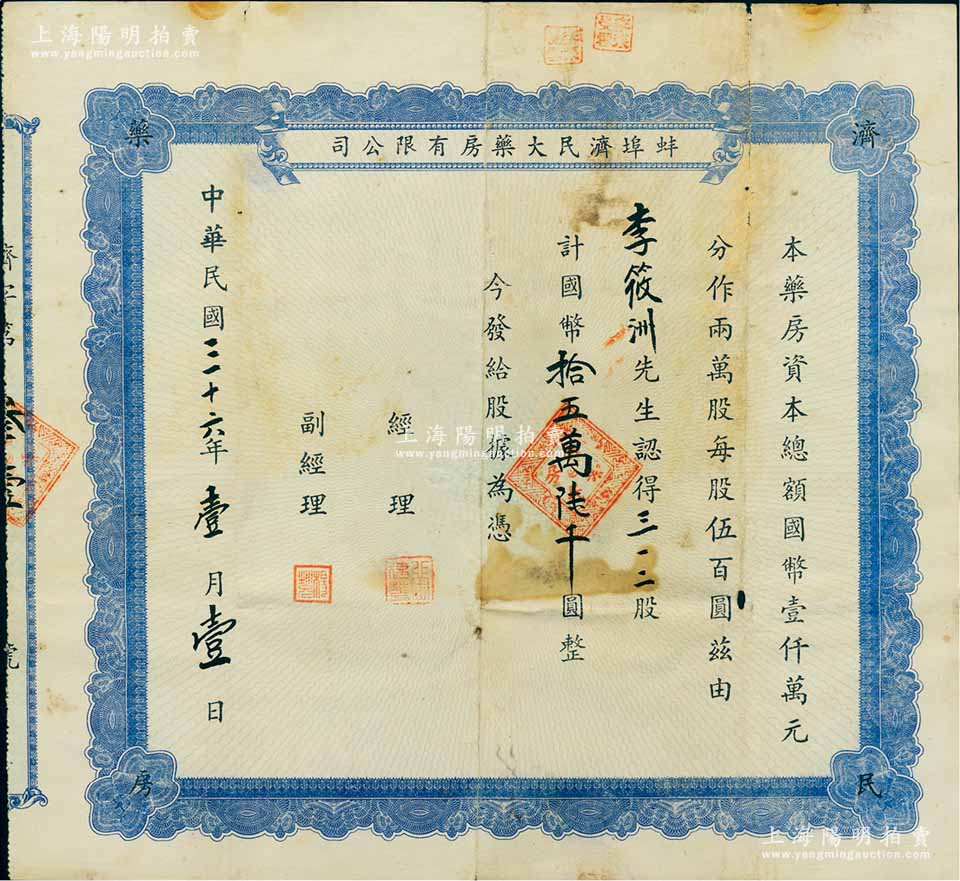 上海陽明拍賣
www.yangmingauction.com
蚌埠濟民大藥房有限公司
濟
民
藥
房
本藥房資本總額國幣壹仟萬元
分作兩萬股每股伍百圓茲由
李筱洲先生認得三一二股
計國幣拾五萬陸千圓整
今發給股據為憑
經理
副經理
中華民國三十六年壹月壹日
濟字第
號
上海陽明拍賣
www.yangmingauction.com
上海陽明拍賣
www.yangmingauction.com